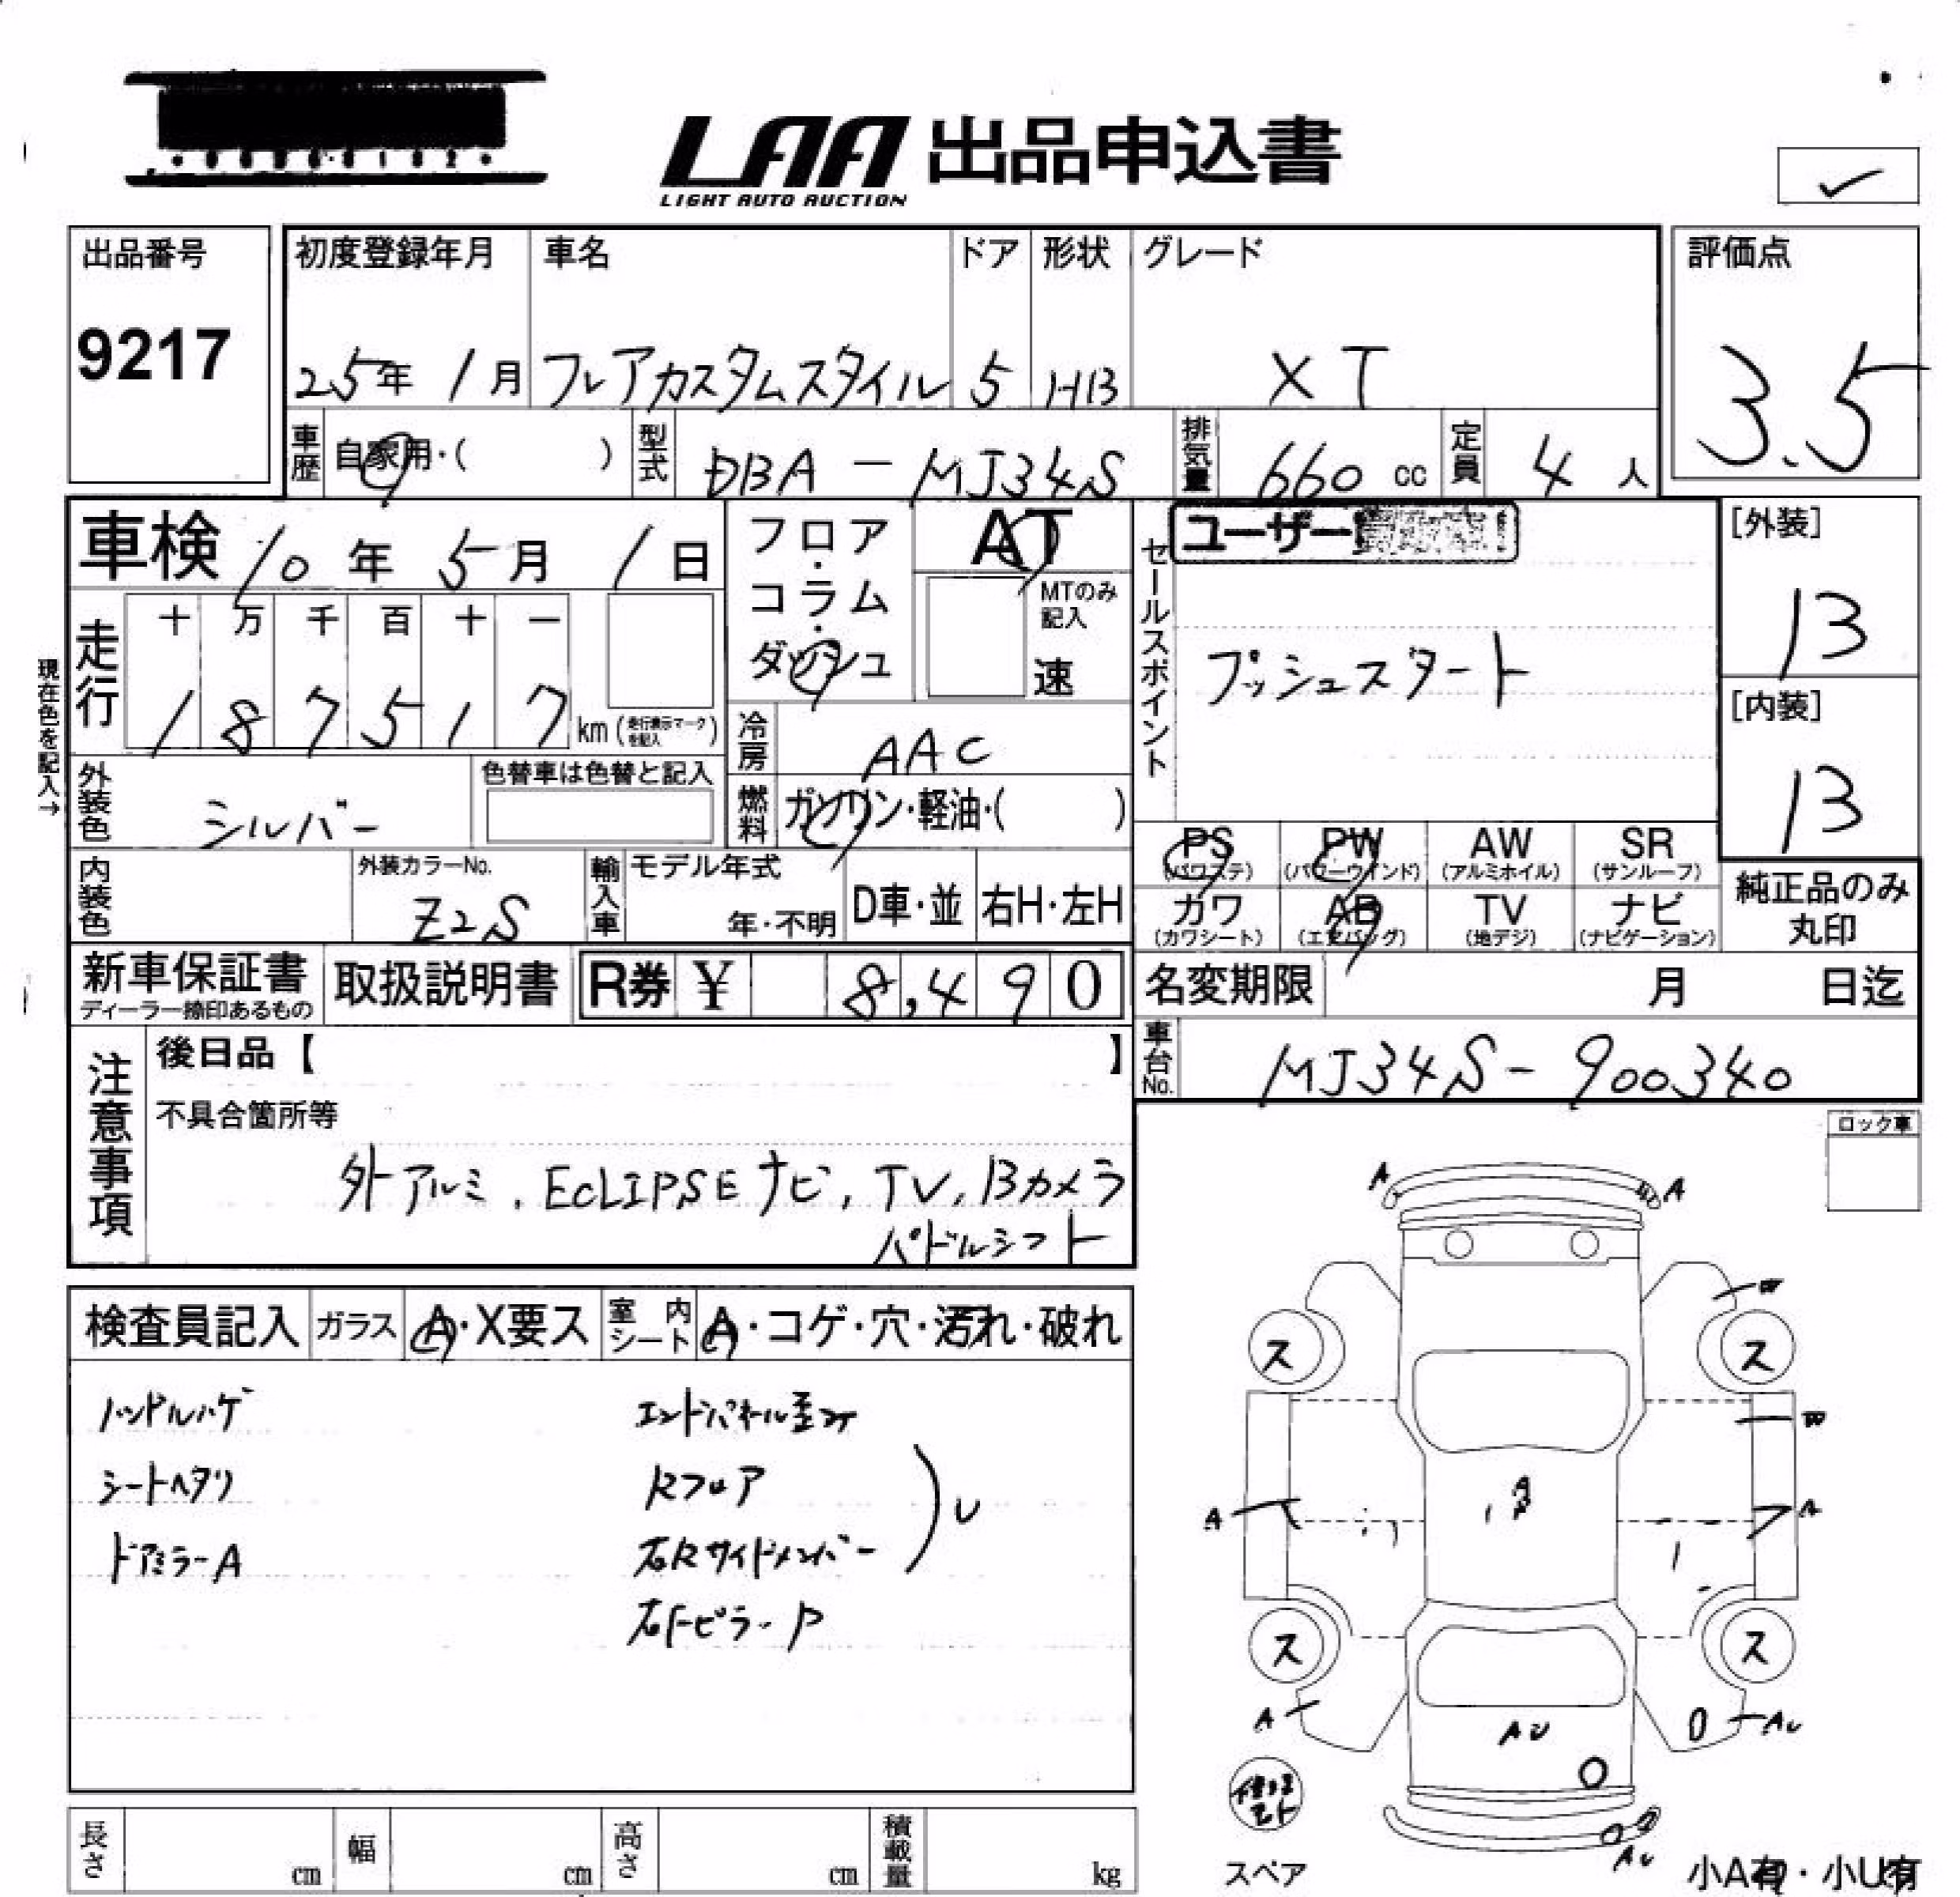 LAA 出品申込書
LIGHT AUTO AUCTION
出品番号
9217
初度登録年月
25年 1月
車名
フレアカスタムスタイル
ドア
5
形状
HB
グレード
XT
評価点
3.5
車歴 自家用・( )
型式 DBA - MJ34S
排気量 660 cc
定員 4 人
車検 10年 5月 1日
フロア・コラム・ダッシュ
AT
MTのみ記入
速
セールスポイント
ユーザー
プッシュスタート
[外装]
13
[内装]
13
現在色を記入→
走行
十 万 千 百 十 一
1 8 7 5 1 7 km (走行表示マークを記入)
冷房 AAC
外装色 シルバー
色替車は色替と記入
燃料 ガソリン・軽油・( )
PS (パワステ)
PW (パワーウインド)
AW (アルミホイル)
SR (サンルーフ)
カワ (カワシート)
AB (エアバッグ)
TV (地デジ)
ナビ (ナビゲーション)
純正品のみ丸印
内装色
外装カラーNo.
Z2S
輸入車
モデル年式
年・不明
D車・並
右H・左H
新車保証書
ディーラー捺印あるもの
取扱説明書
R券 ¥ 8,490
名変期限 月 日迄
車台No. MJ34S-900340
注意事項
後日品【 】
不具合箇所等
外アルミ, ECLIPSE ナビ, TV, Bカメラ
パドルシフト
ロック車
検査員記入
ガラス A・X要ス
室内シート A・コゲ・穴・汚れ・破れ
ハンドルハゲ
シートヘタリ
ドアミラーA
エンドパネル歪み
Rフロア
右Rサイドメンバー
U
右Fピラー P
A A
W
ス ス
W
A A A
ス ス
A AU AU
AU
修理キット
スペア
小A有・小U有
長さ cm
幅 cm
高さ cm
積載量 kg